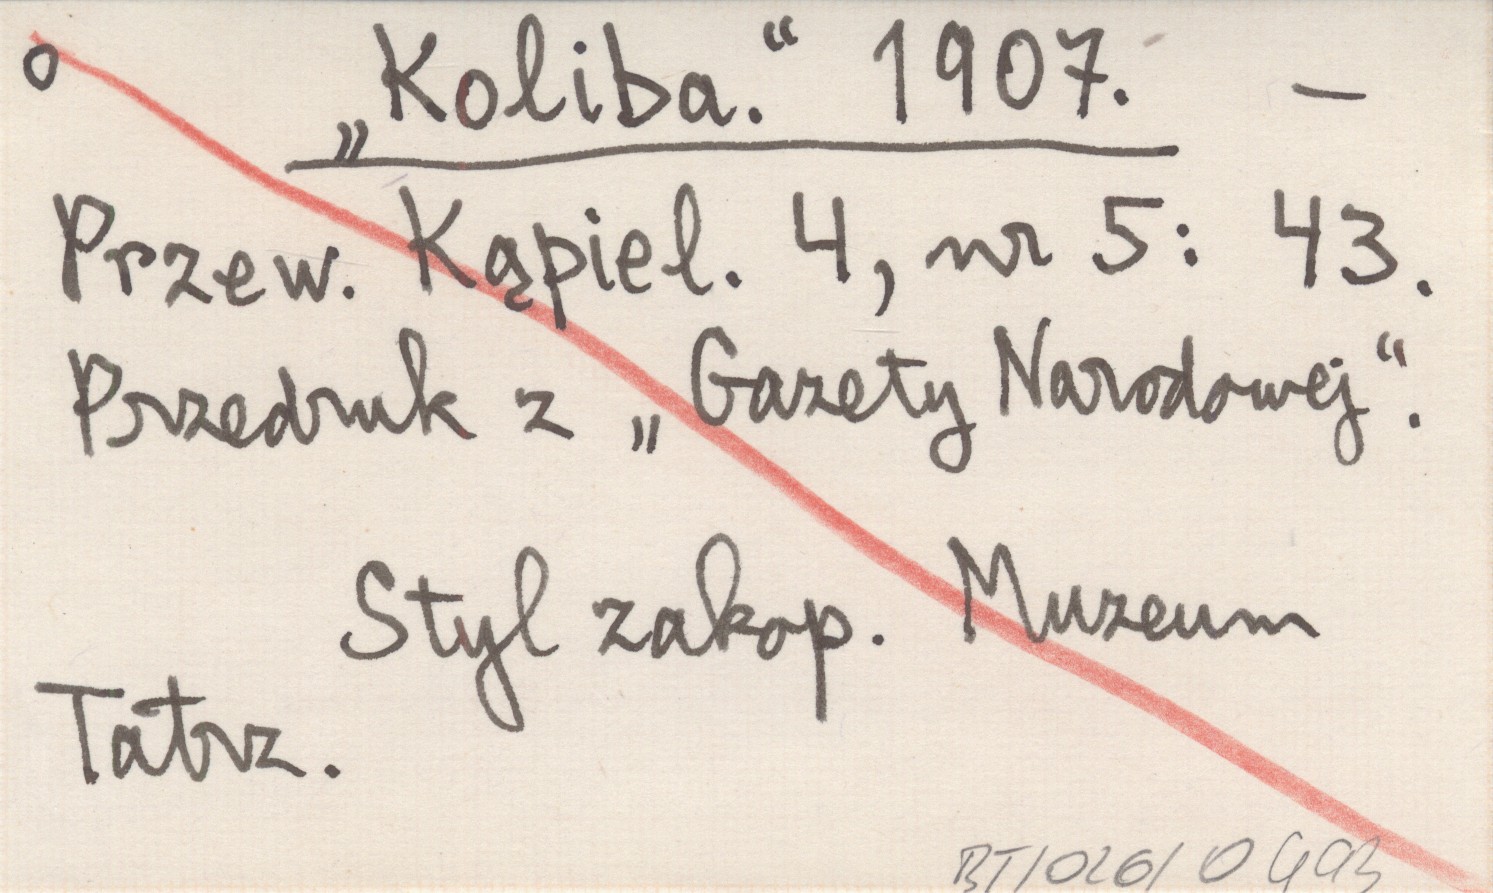 o „Koliba.“ 1907. —
Przew. Kąpiel. 4, nr 5: 43.
Przedruk z „Gazety Narodowej“.
Styl zakop. Muzeum
Tatrz.
BT/026/0493